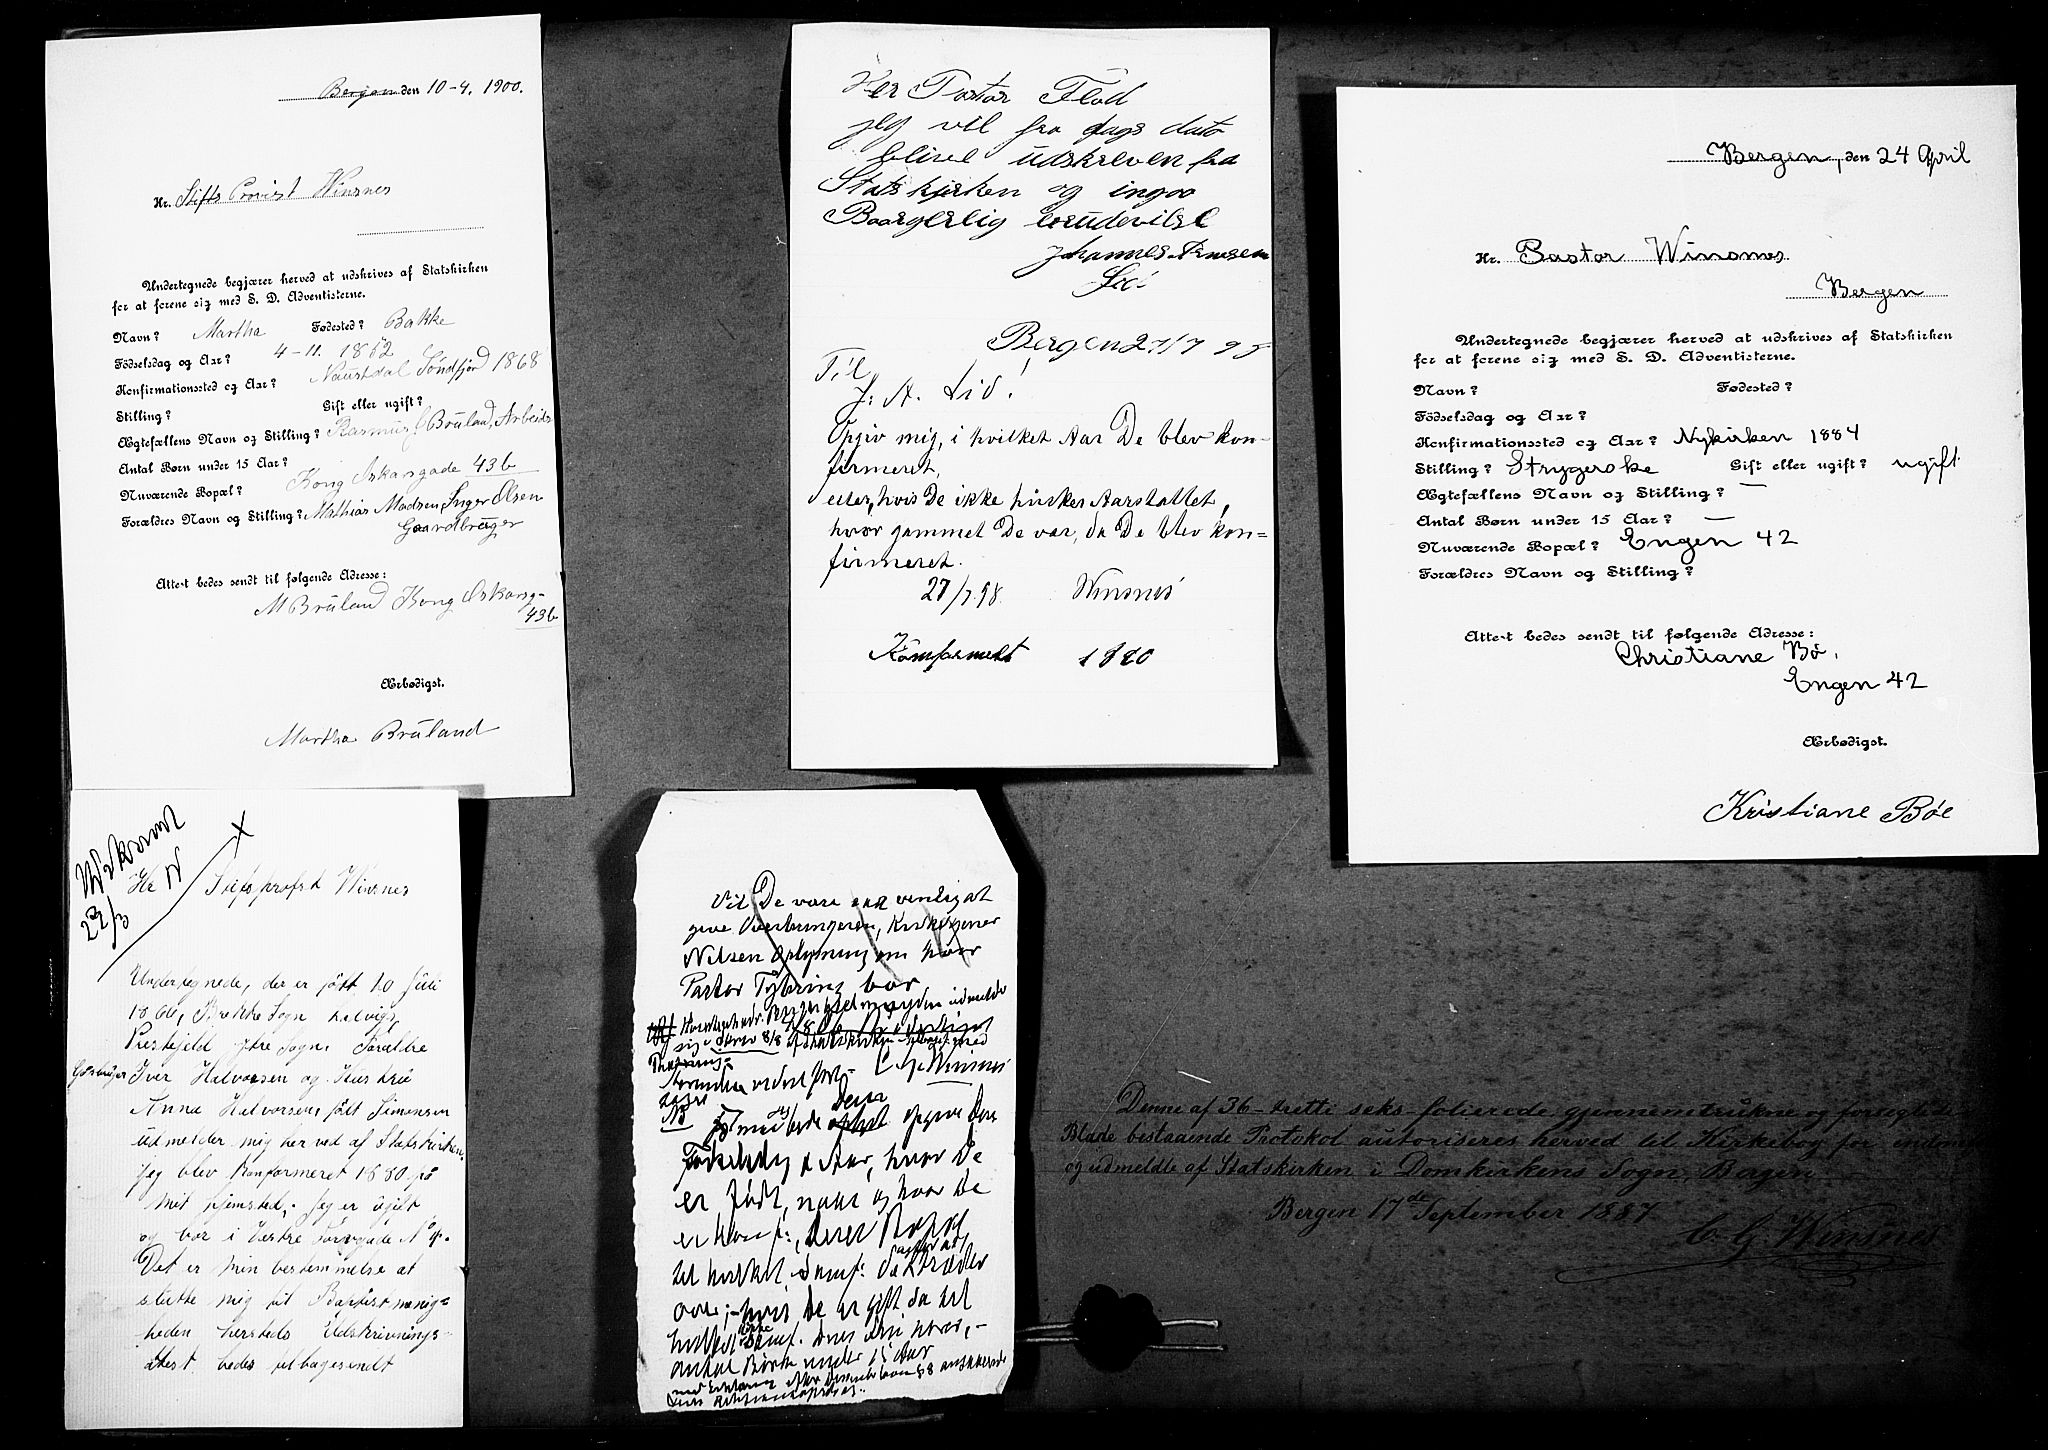 Bergen den 10-4. 1900.
Hr. Stifts Provist Winsnes
Undertegnede begjærer herved at udskrives af Statskirken
for at forene sig med S. D. Adventisterne.
Navn? Martha Fødested? Bakke
Födselsdag og Aar? 4-11. 1852
Konfirmationssted og Aar? Naustdal Søndfjord 1868
Stilling? Gift eller ugift?
Ægtefællens Navn og Stilling? Rasmus Bruland, Arbeids
Antal Børn under 15 Aar?
Nuværende Bopæl? Kong Oskarsgade 43b
Forældres Navn og Stilling? Mathias Madsen, Inger Olsen
Gaardbruger
Attest bedes sendt til følgende Adresse:
M Bruland Kong Oskarsg-
43b
Ærbødigst.
Martha Bruland
Her Pastor Flod
jeg vil fra dags dato
blive udskreven fra
Statskjrken og ingaa
Johannes Arnesen
Bergen 27/7 98
Til
J. A. Lid!
Opgiv mig, i hvilket Aar De blev kon=
firmeret,
eller, hvis De ikke husker Aarstallet,
hvor gammel De var, da De blev kon=
firmeret.
27/7.98. Winsnes
1820
Bergen, den 24 April
Hr. Pastor Winsnes
Bergen
Undertegnede begjærer herved at udskrives af Statskirken
for at forene sig med S. D. Adventisterne.
Navn? Fødested?
Födselsdag og Aar?
Konfirmationssted og Aar? Nykirken 1884
Stilling? Strygerske Gift eller ugift? ugift
Ægtefællens Navn og Stilling? —
Antal Børn under 15 Aar? —
Nuværende Bopæl? Engen 42
Forældres Navn og Stilling?
Attest bedes sendt til følgende Adresse:
Christiane Bø,
Engen 42
Ærbødigst.
Kristiane Bøe
22/3
X
Hr Stifsprofst Winsnes
Undertegnede, der er født 10 Juli
Brekke Sogn
Ytre Sogn. Forældre
Iver Halvorsen og Hustru
Anna Halvorsen, født Simonsen
udmelder mig herved af Statskirken.
Jeg blev Konformeret 1880 på
mit hjemsted; Jeg er ugift
og bor i Vestre
Det er min bestemmelse at
slutte mig til Baptistmenig=
heden
Attest bedes tilbagesendt
Vil De være saa venlig at
give Overbringeren, Kirketjener
Nilsen Oplysning om hvor
Pastor Tybring bor
C. G. Winsnes
NB
opgive Deres
Fødselsdag & Aar, hvor De
er født, naar og hvor De
er konf:, Deres Bopæl
til hvilket Samf: De træder
over; – hvis De er gift da til
hvilket
antal Børn under 15 Aar
Denne af 36 - tretti seks - folierede, gjennemtrukne og forseglede
Blade bestaaende Protokol autoriseres herved til Kirkebog for
og udmeldte af Statskirken i Domkirkens Sogn, Bergen
Bergen 17de September 1887
C. G. Winsnes